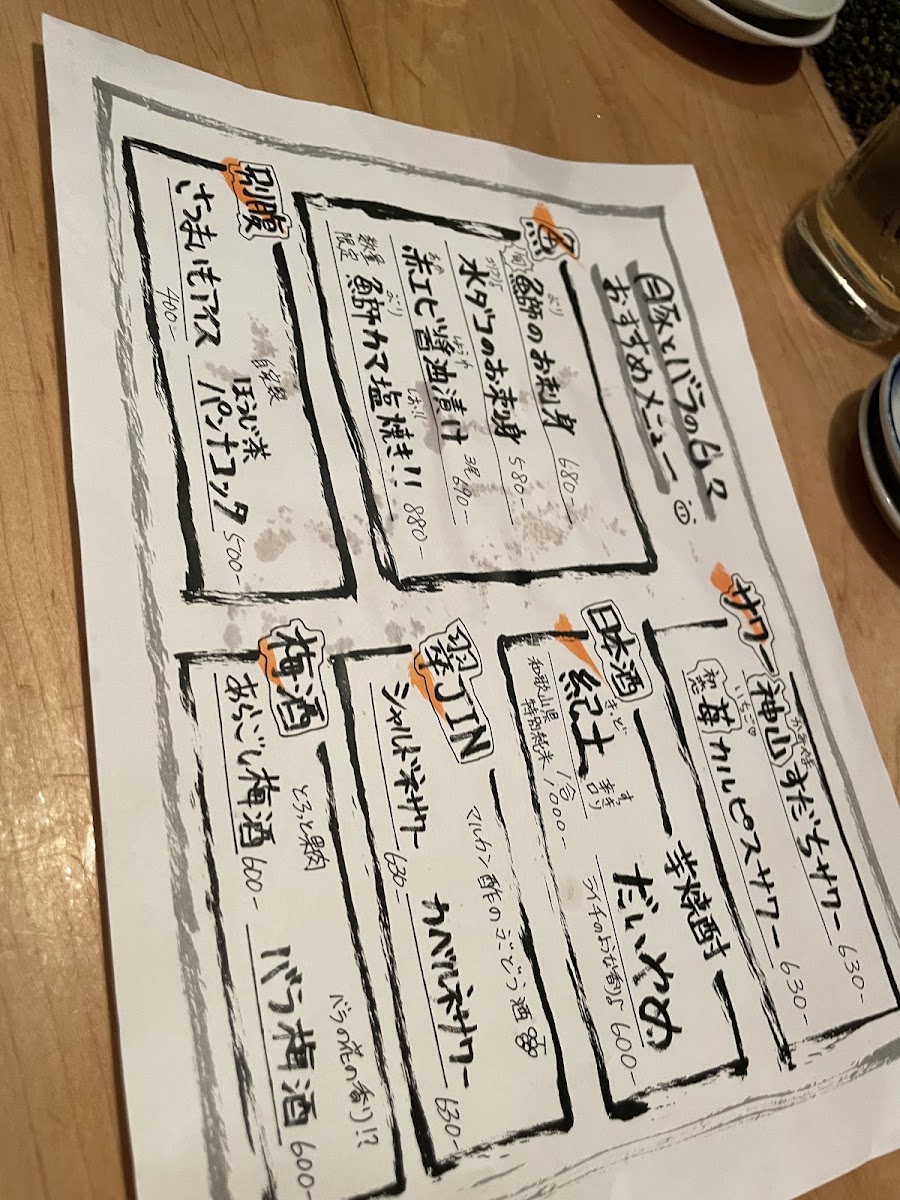 豚とバラの日々
おすすめメニュー
魚
旬 鰤のお刺身 680-
ぶり
水ダコのお刺身 580-
赤エビ醤油漬け 3尾 690-
数量限定 鰤カマ塩焼き!! 880-
ぶり
別腹
さつまいもアイス 400-
自家製
ほうじ茶
パンナコッタ 500-
サワー
神山すだちサワー 630-
かみやま
初恋 苺カルピスサワー 630-
いちご♡
日本酒
紀土
きっど
和歌山県
特別純米 1合 1,000-
芋焼酎
だいやめ
ライチのような香り♪ 600-
翠JIN
マルカン酢のぶどう酒
シャルドネサワー 630-
カベルネサワー 630-
梅酒
とろっと果肉
あらごし梅酒 600-
バラの花の香り!?
バラ梅酒 600-